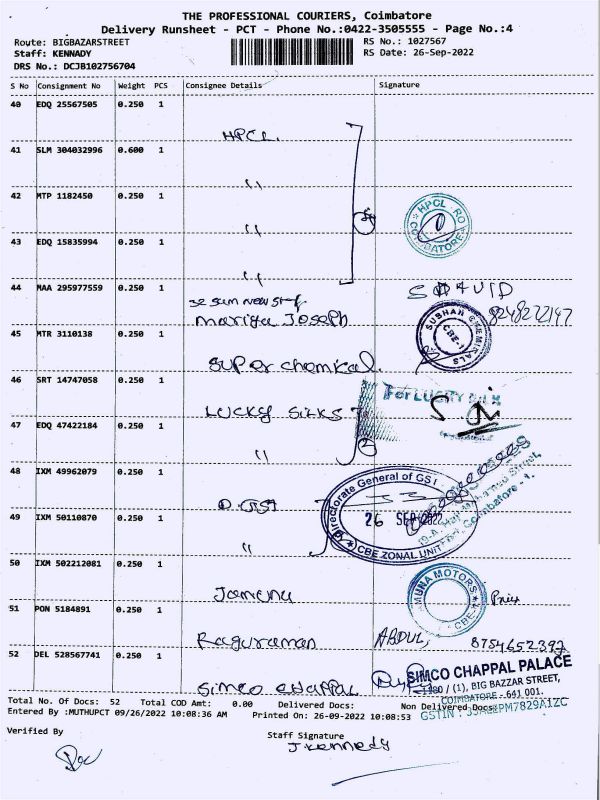 THE PROFESSIONAL COURIERS, Coimbatore
Delivery Runsheet - PCT - Phone No.:0422-3505555 - Page No.:4
Route: BIGBAZARSTREET RS No.: 1027567
Staff: KENNADY RS Date: 26-Sep-2022
DRS No.: DCJB102756704
S No Consignment No Weight PCS Consignee Details Signature
40 EDQ 25567505 0.250 1
HPCL
41 SLM 304032996 0.600 1
"
42 MTP 1182450 0.250 1
"
HPCL RO
COIMBATORE
43 EDQ 15835994 0.250 1
"
44 MAA 295977559 0.250 1
Mariya Joseph
8248272147
45 MTR 3110138 0.250 1
SUBHAN CHEMICALS
CBE-1
Super chemical
46 SRT 14747058 0.250 1
LUCKY SILKS
For LUCKY SILK
47 EDQ 47422184 0.250 1
"
48 IXM 49962079 0.250 1
D. GST
Directorate General of GSI
26 SEP 2022
CBE ZONAL UNIT
Coimbatore - 1.
49 IXM 50110870 0.250 1
"
50 IXM 502212081 0.250 1
Jamuna
JAMUNA MOTORS
CBE
51 PON 5184891 0.250 1
Raguraman ABDUL, 8754652392
52 DEL 528567741 0.250 1
SIMCO CHAPPAL
SIMCO CHAPPAL PALACE
1180 / (1), BIG BAZZAR STREET,
COIMBATORE - 641 001.
Total No. Of Docs: 52 Total COD Amt: 0.00 Delivered Docs: Non Delivered Docs:
Entered By :MUTHUPCT 09/26/2022 10:08:36 AM Printed On: 26-09-2022 10:08:53
Verified By Staff Signature
J Kennedy